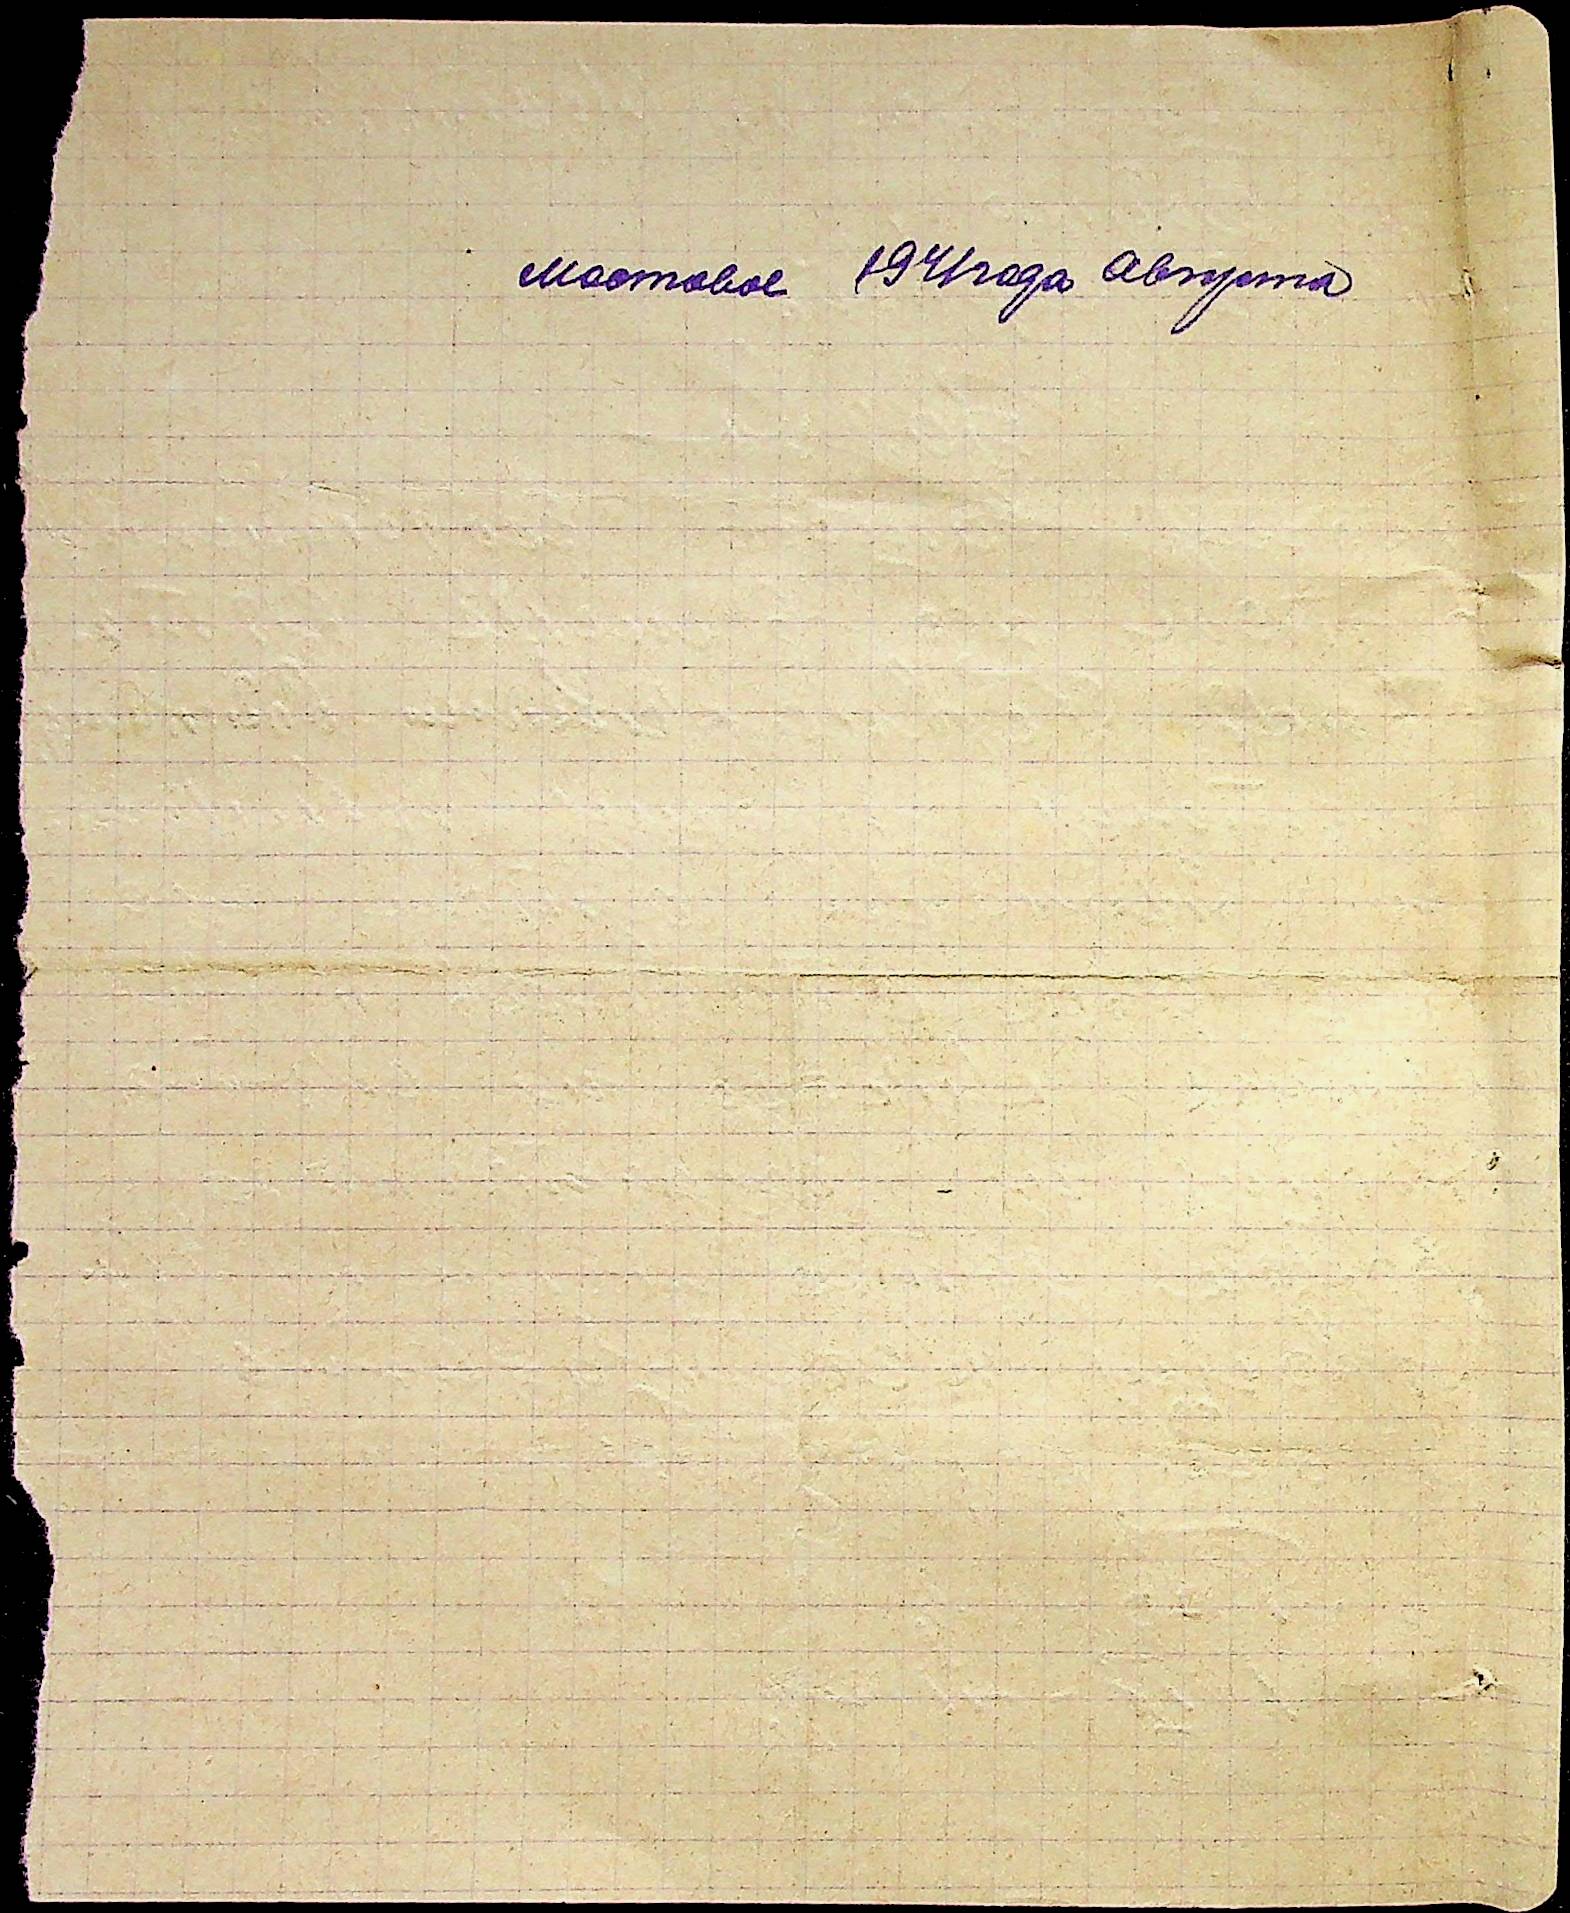 Мостовое 1941 года Августа